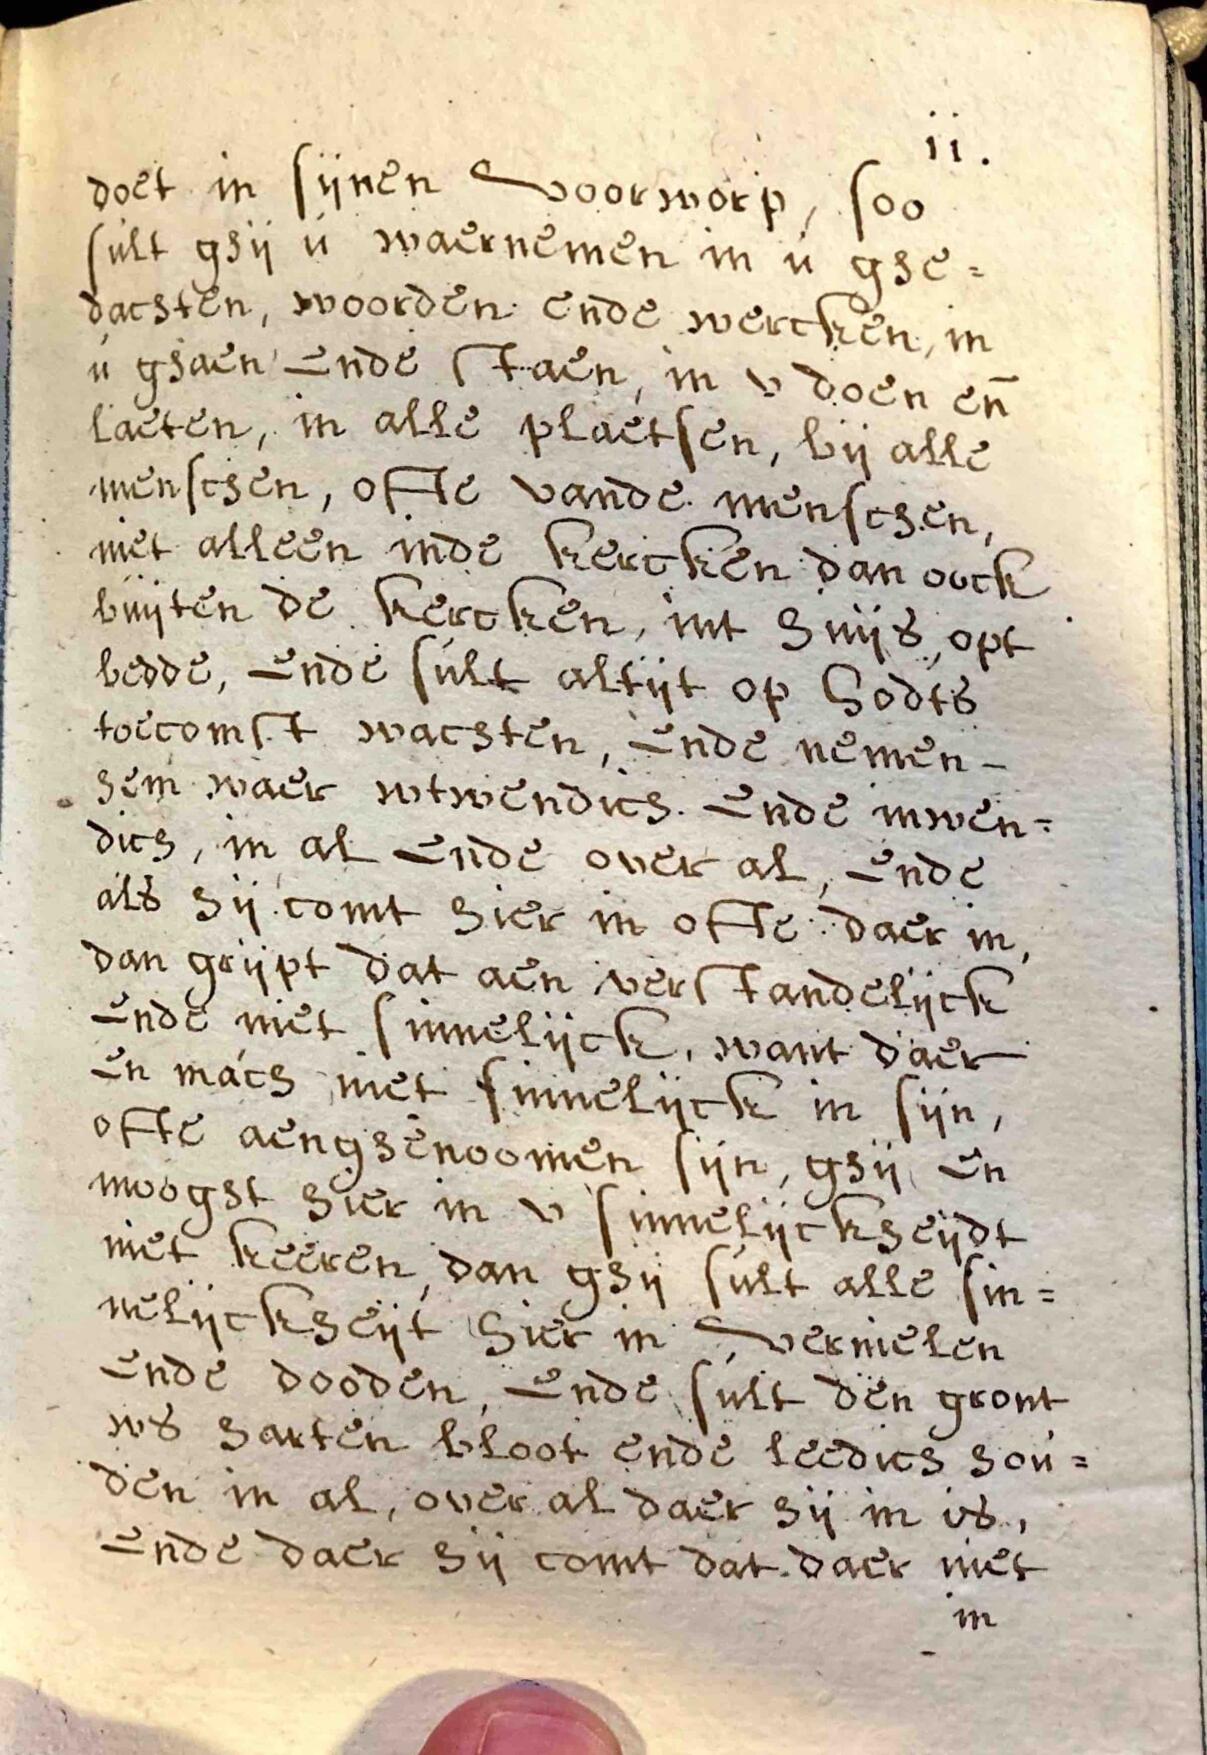 ii.
doet in sijnen Voorworp, soo
sult ghij u waernemen in u ghe=
dachten, woorden ende wercken, in
u ghaen Ende staen, in v doen en̄
laeten, in alle plaetsen, bij alle
menschen, ofte vande menschen,
niet alleen inde kercken dan oock
buijten de kercken, int huijs, opt
bedde, Ende sult altijt op Godts
toecomst wachten, Ende nemen-
hem waer wtwendich. Ende inwen=
dich, in al Ende over al, Ende
als hij comt hier in ofte daer in,
dan grijpt dat aen verstandelijck
Ende niet sinnelijck, want daer
En mach niet sinnelijck in sijn,
ofte aenghenoomen sijn, ghij En
mooght hier in v sinnelijckheijdt
niet keeren, dan ghij sult alle sin=
nelijckheijt hier in Vernielen
Ende dooden, Ende sult den gront
ws harten bloot ende leedich hou=
den in al, over al daer hij in is,
Ende daer hij comt dat daer niet
in